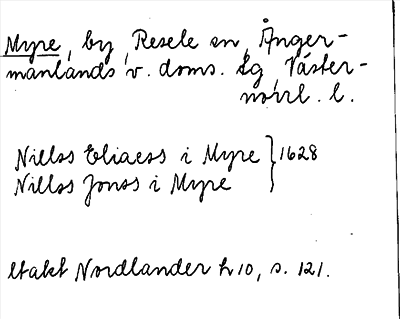 Myre, by, Resele sn, Ånger-
manlands v. doms. Lg, Väster-
norrl. l.
Nillss Eliaess i Myre } 1628
Nillss Jonss i Myre
Utakt Nordlander h 10, s. 121.